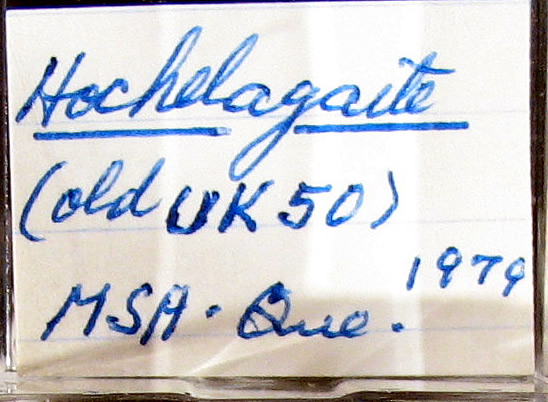 Hochelagaite
(old UK50)
MSH. Que. 1979